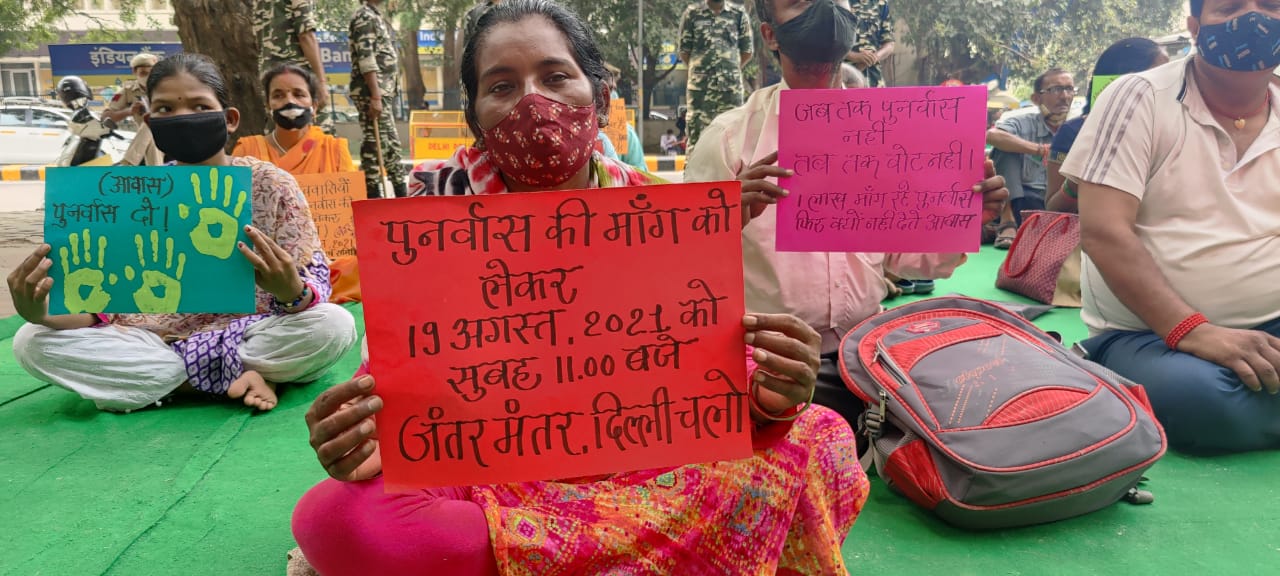 इंडियन
Bank
DELHI PO
(आवास)
पुनर्वास दो।
पुनर्वास की माँग को
लेकर
19 अगस्त, 2021 को
सुबह 11.00 बजे
जंतर मंतर, दिल्ली चलो
जब तक पुनर्वास
नहीं
तब तक वोट नही।
। लाख माँग रहे पुनर्वास
फिर क्यों नही देते आवास